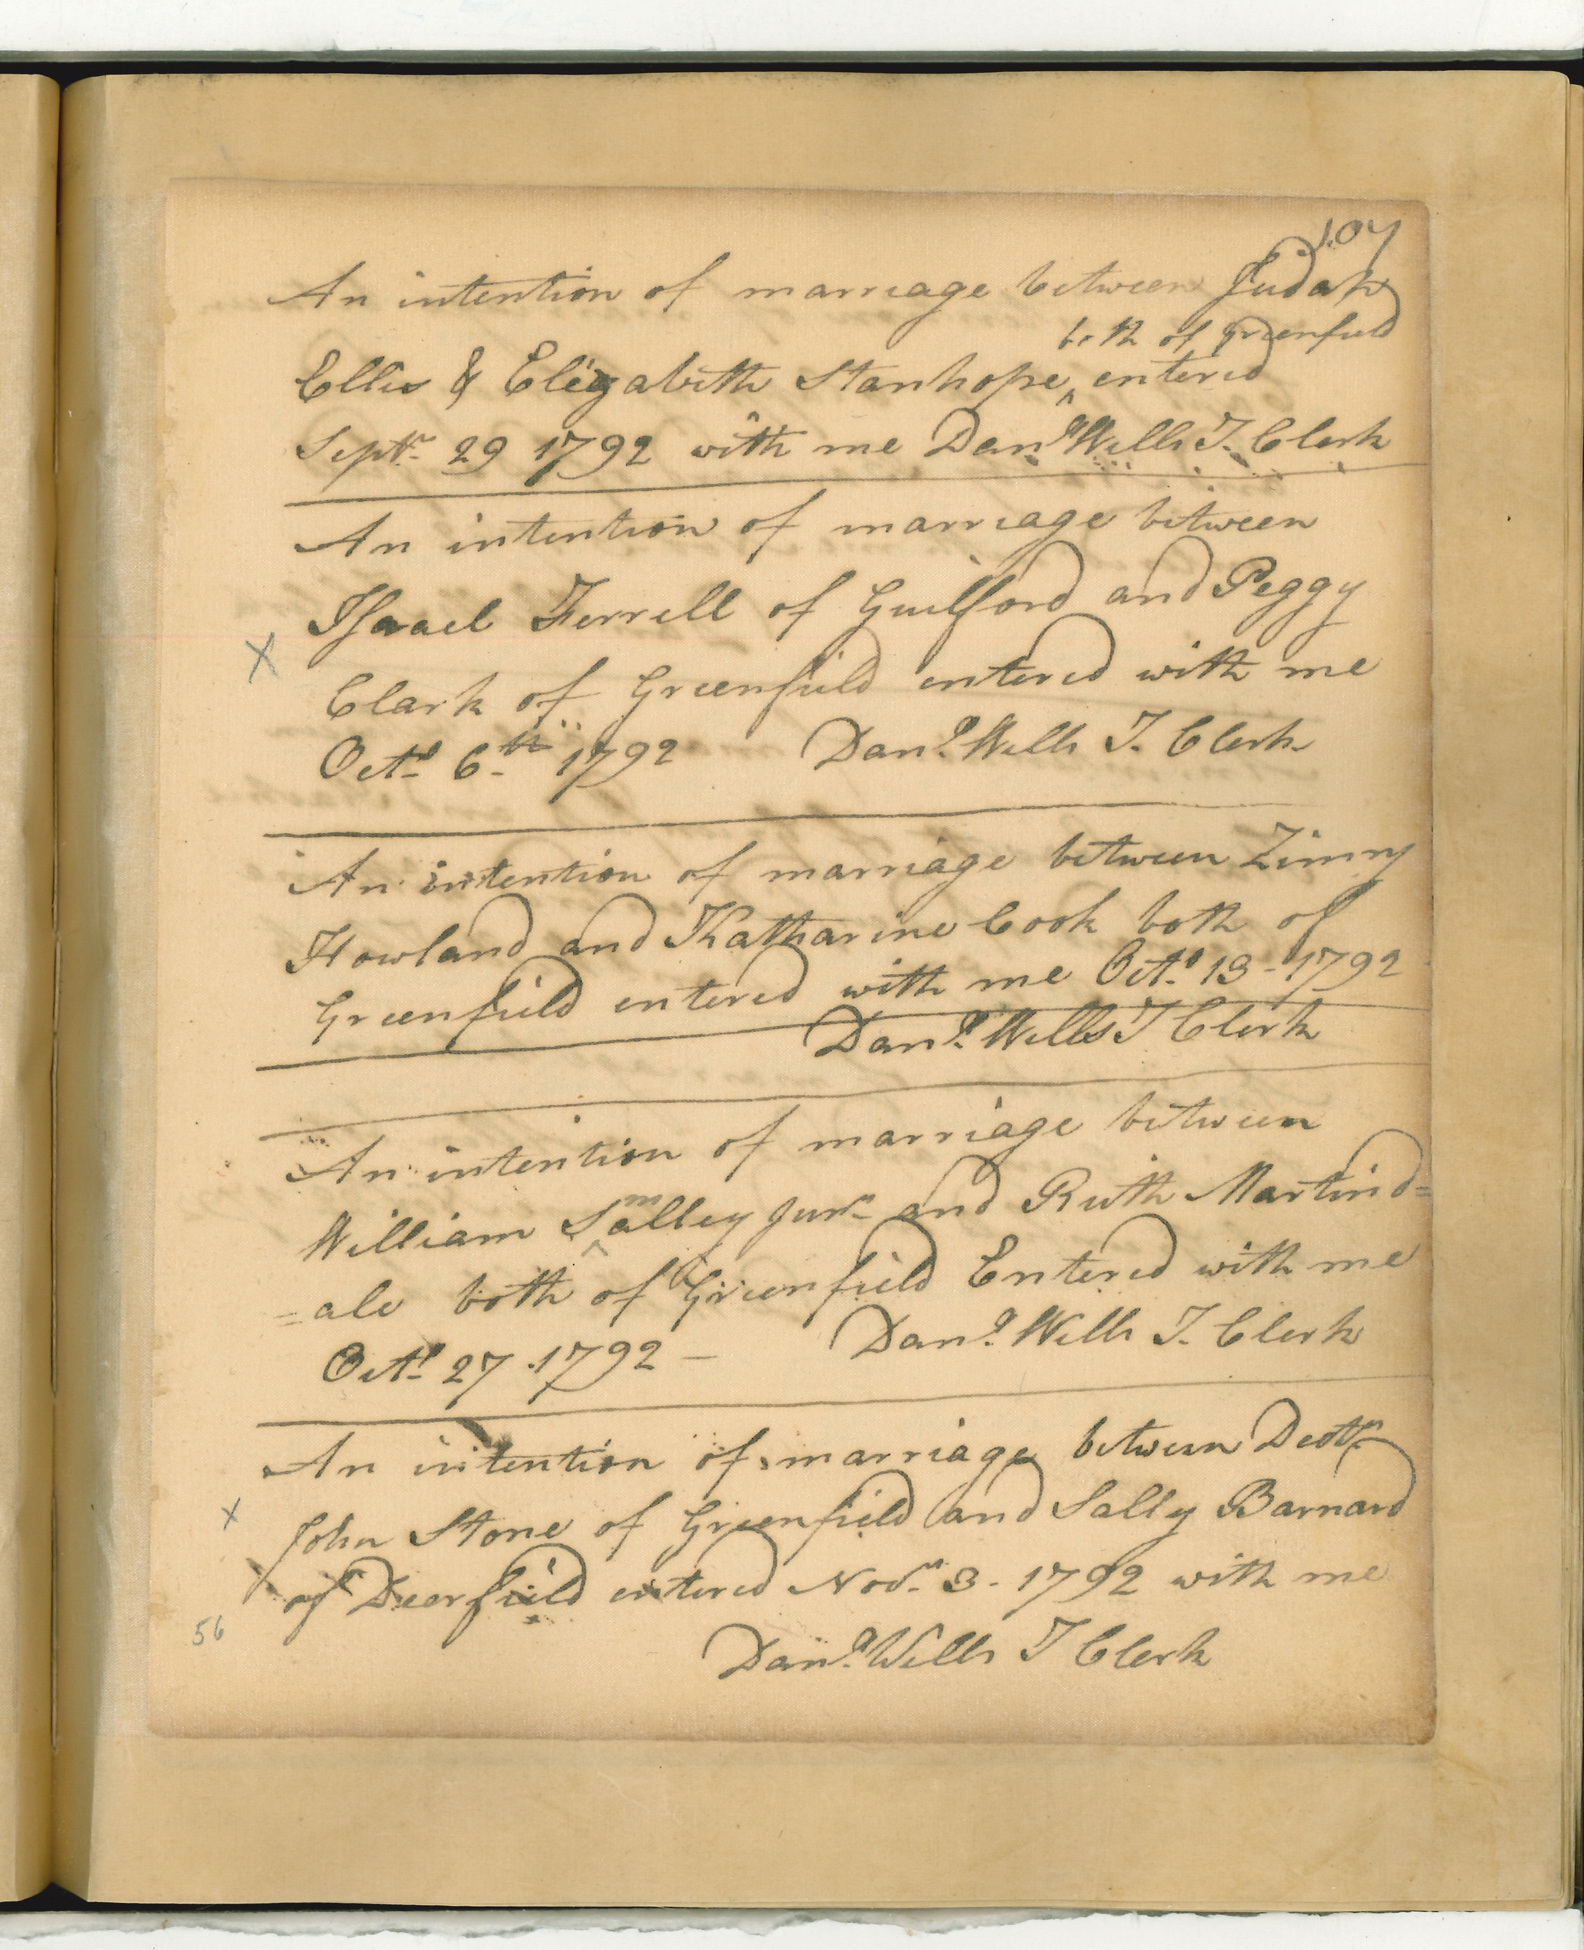 107
An intention of marriage between Judah
both of Greenfield
Ellis & Elizabeth Stanhope ‸ entered
Septr. 29 1792 with me Danl. Wells T. Clerk
An intention of marriage between
Israel Ferrell of Guilford and Peggy
X
Clark of Greenfield entered with me
Octo. 6th. 1792 Danl. Wells T. Clerk
An intention of marriage between Zimry
Howland and Katharine Cook both of
Greenfield entered with me Octo. 13 - 1792
Danl. Wells T Clerk
An intention of marriage between
William Smalley Junr. and Ruth Martind=
=ale both of Greenfield Entered with me
Octo. 27 1792 — Danl. Wells T. Clerk
An intention of marriage between Doctr.
X
John Stone of Greenfield and Sally Barnard
of Deerfield entered Novr. 3 - 1792 with me
56
Danl. Wells T Clerk